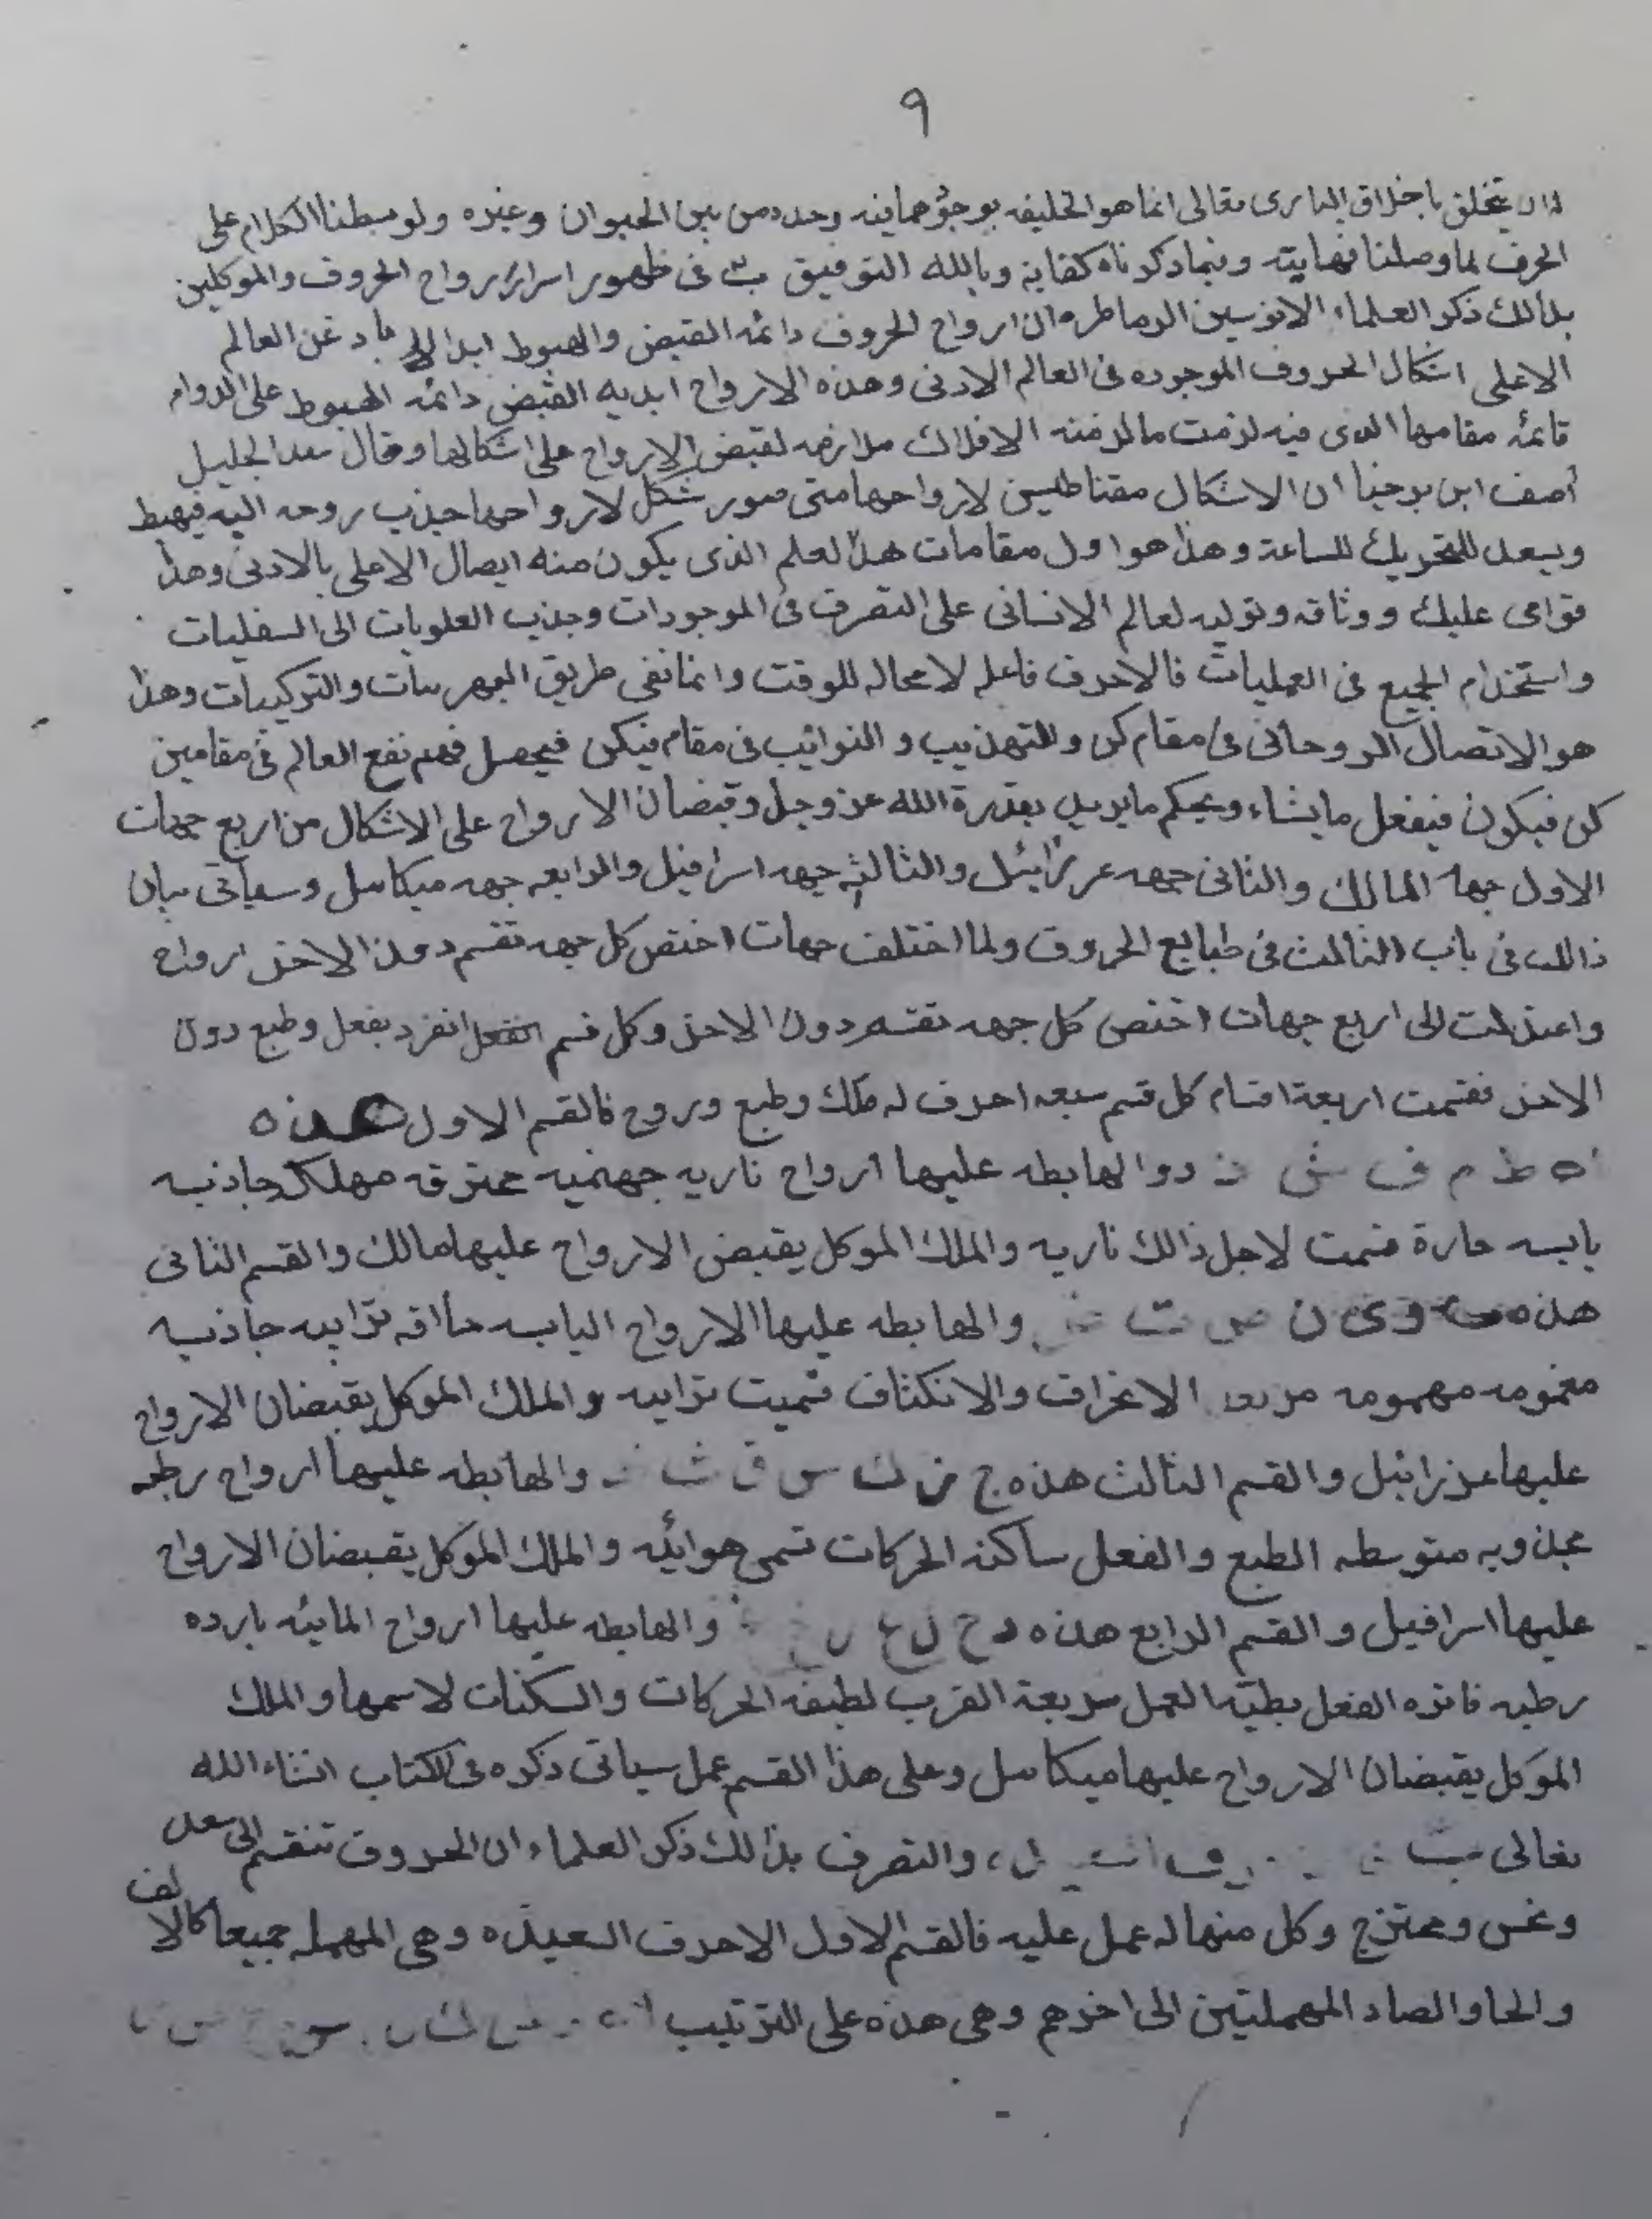 ٩
يتخلق باخلاق البارى تعالى انما هو الخليفه بوجوهما فيه وحده من بين الحيوان وغيره ولو بسطنا الكلام على
الحرف لما وصلنا نهايته وفيما ذكرناه كفايه وبالله التوفيق فى ظهور اسرار ارواح الحروف والموكلين
بذالك ذكر العلماء ان ارواح الحروف دائمه القبض والهبوط ابدا عن العالم
الاعلى اشكال الحروف الموجوده فى العالم الادنى وهذه الارواح ابديه القبض دائمه الهبوط على الدوام
قائمه مقامها الذى فيه لزمت مالزمته الافلاك ملازمه لقبض الارواح على اشكالها وقال الجليل
أصف ابن برخيا ان الاشكال مقناطيس لارواحها متى صور شكل لارواحها جذب روحه اليه فيهبط
ويعد للتحريك للساعة وهذا هو اول مقامات هذا لعلم الذى يكون منه ايصال الاعلى بالادنى وهذا
عليك ووثاقه لعالم الانسانى على التصرف فى الموجودات وجذب العلويات الى السفليات
واستخدام الجميع فى العمليات فالاحرف فاعله لا محاله للوقت وانما نفى طريق والتركيبات وهذا
هو الاتصال الروحانى فى مقام كن وللتهذيب و فى مقام فيكن فيحصل فهم نفع العالم فى مقامين
كن فيكون فيفعل ما يشاء ويحكم ما يريد بقدرة الله عز وجل وقبضان الارواح على الاشكال من اربع جهات
الاول جهة المالك والثانى جهه عزرائيل والثالثه جهه اسرافيل والرابعه جهه ميكاسل وسيأتى بيان
ذالك فى باب الثالث فى طبايع الحروف ولما اختلف جهات اختص كل جهه تقسم دون الاخر ارواح
واعتدلت الى اربع جهات اختص كل جهه تقسم دون الاخر وكل قسم انفرد بفعل وطبع دون
الاخر فقسمت اربعة اقسام كل قسم سبعه احرف له ملك وطبع وروح فالقسم الاول هذه
ا ه ط م ف ش ذ والهابطه عليها ارواح ناريه جهنميه محترقه مهلكه جاذبه
يابسه حارة قسمت لاجل ذالك ناريه والملك الموكل يقبض الارواح عليها مالك والقسم الثانى
هذه و ى ن ص ت ض والهابطه عليها الارواح اليابسه ترابيه جاذبه
مغمومه مهمومه الاغراق والانكثاف قسميت ترابيه والملك الموكل يقبضان الارواح
عليها عزرائيل والقسم الثالث هذه ج ز ك س ق ث والهابطه عليها ارواح رطبه
مجذوبه متوسطه الطبع والفعل ساكنه الحركات تسمى هوائيه والملك الموكل يقبضان الارواح
عليها اسرافيل والقسم الرابع هذه د ح ل ع ر والهابطه عليها ارواح المائيه بارده
رطبه فاتره الفعل بطيئه العمل سريعة القرب لطيفه الحركات والسكنات لاسمها والملك
الموكل يقبضان الارواح عليها ميكاسل وعلى هذا القسم عمل سياتى ذكره فى الكتاب انشاء الله
تعالى والتصرف بذالك ذكر العلماء ان الحروف تنقسم الى سعد
ونحس وممتزج وكل منها له عمل عليه فالقسم الاول الاحرف السعيده وهى المهمله جميعا كالالف
والحا والصاد المهملتين الى اخرهم وهى هذه على الترتيب